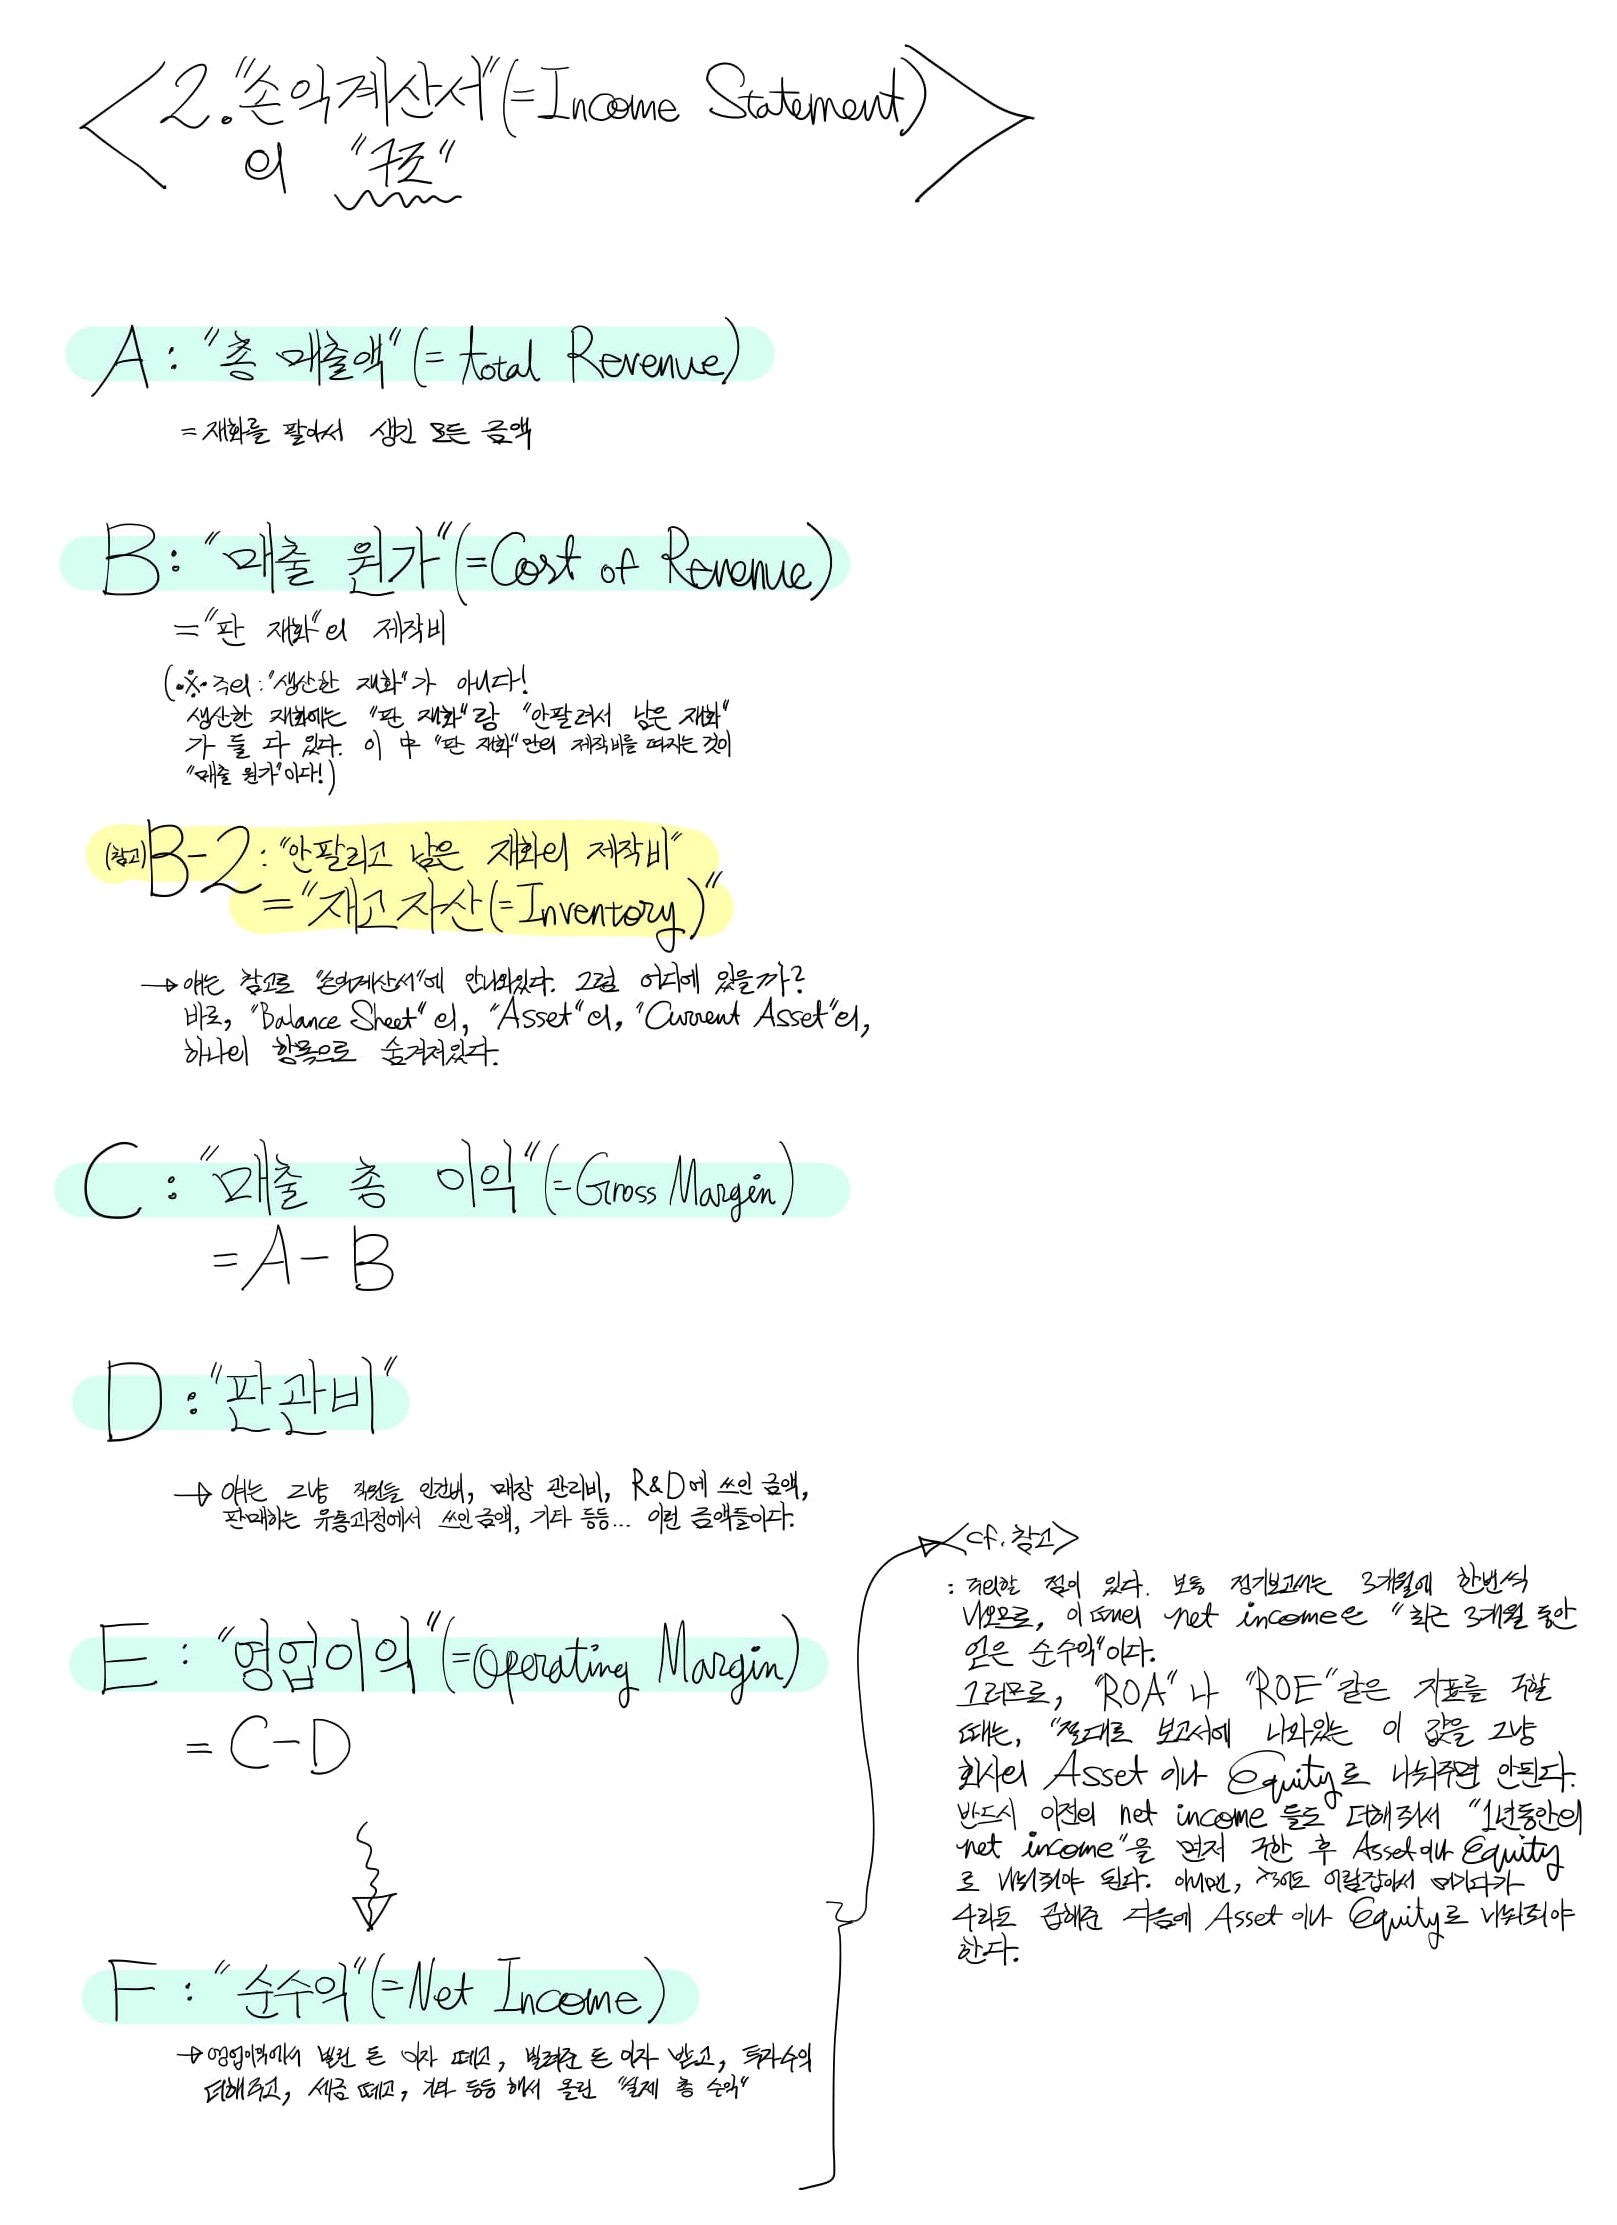 <2. "손익계산서"(=Income Statement)>
의 "구조"
A : "총 매출액"(= total Revenue)
= 재화를 팔아서 생긴 모든 금액
B : "매출 원가"(=Cost of Revenue)
="판 재화"의 제작비
(※주의 : "생산한 재화"가 아니다!
생산한 재화에는 "판 재화"랑 "안팔려서 남은 재화"
가 둘 다 있다. 이 中 "판 재화"만의 제작비를 따지는 것이
"매출 원가"이다!)
(참고) B-2 : "안팔리고 남은 재화의 제작비"
="재고 자산(=Inventory)"
→ 얘는 참고로 "손익계산서"에 안나와있다. 그럼 어디에 있을까?
바로, "Balance Sheet"의, "Asset"의, "Current Asset"의,
하나의 항목으로 숨겨져있다.
C : "매출 총 이익"(=Gross Margin)
= A - B
D : "판관비"
→ 얘는 그냥 직원들 인건비, 매장 관리비, R&D에 쓰인 금액,
판매하는 유통과정에서 쓰인 금액, 기타 등등... 이런 금액들이다.
E : "영업이익"(=Operating Margin)
= C - D
F : "순수익"(=Net Income)
→ 영업이익에서 빌린 돈 이자 떼고, 빌려준 돈 이자 받고, 투자수익
더해주고, 세금 떼고, 기타 등등 해서 올린 "실제 총 수익"
<cf. 참고>
: 주의할 점이 있다. 보통 정기보고서는 3개월에 한번씩
나오므로, 이 때의 net income은 "최근 3개월 동안
얻은 순수익"이다.
그러므로, "ROA"나 "ROE"같은 지표를 구할
때는, "절대로 보고서에 나와있는 이 값을 그냥
회사의 Asset 이나 Equity로 나눠주면 안된다.
반드시 이전의 net income 들도 더해줘서 "1년동안의
net income"을 먼저 구한 후 Asset이나 Equity
로 나눠줘야 된다. 아니면, 적어도 여기다가
4라도 곱해준 다음에 Asset 이나 Equity로 나눠줘야
한다.